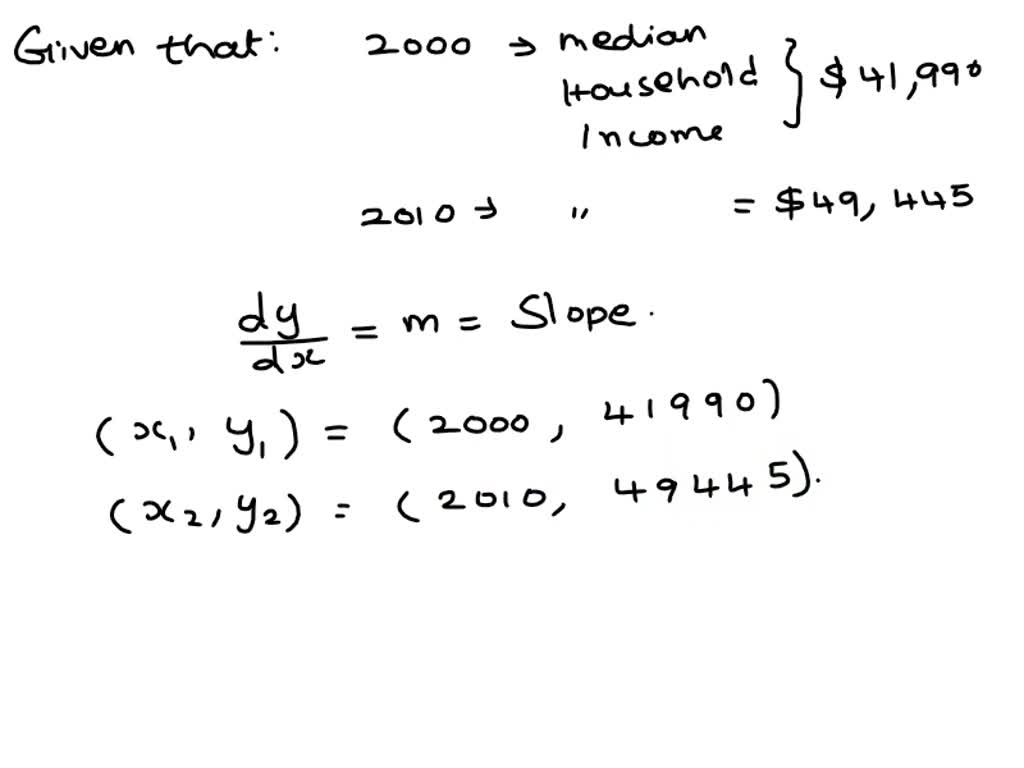 Given that: 2000 → median
Household } $41,990
Income
2010 → " = $49,445
dy/dx = m = Slope.
(x₁, y₁) = (2000, 41990)
(x₂, y₂) = (2010, 49445).